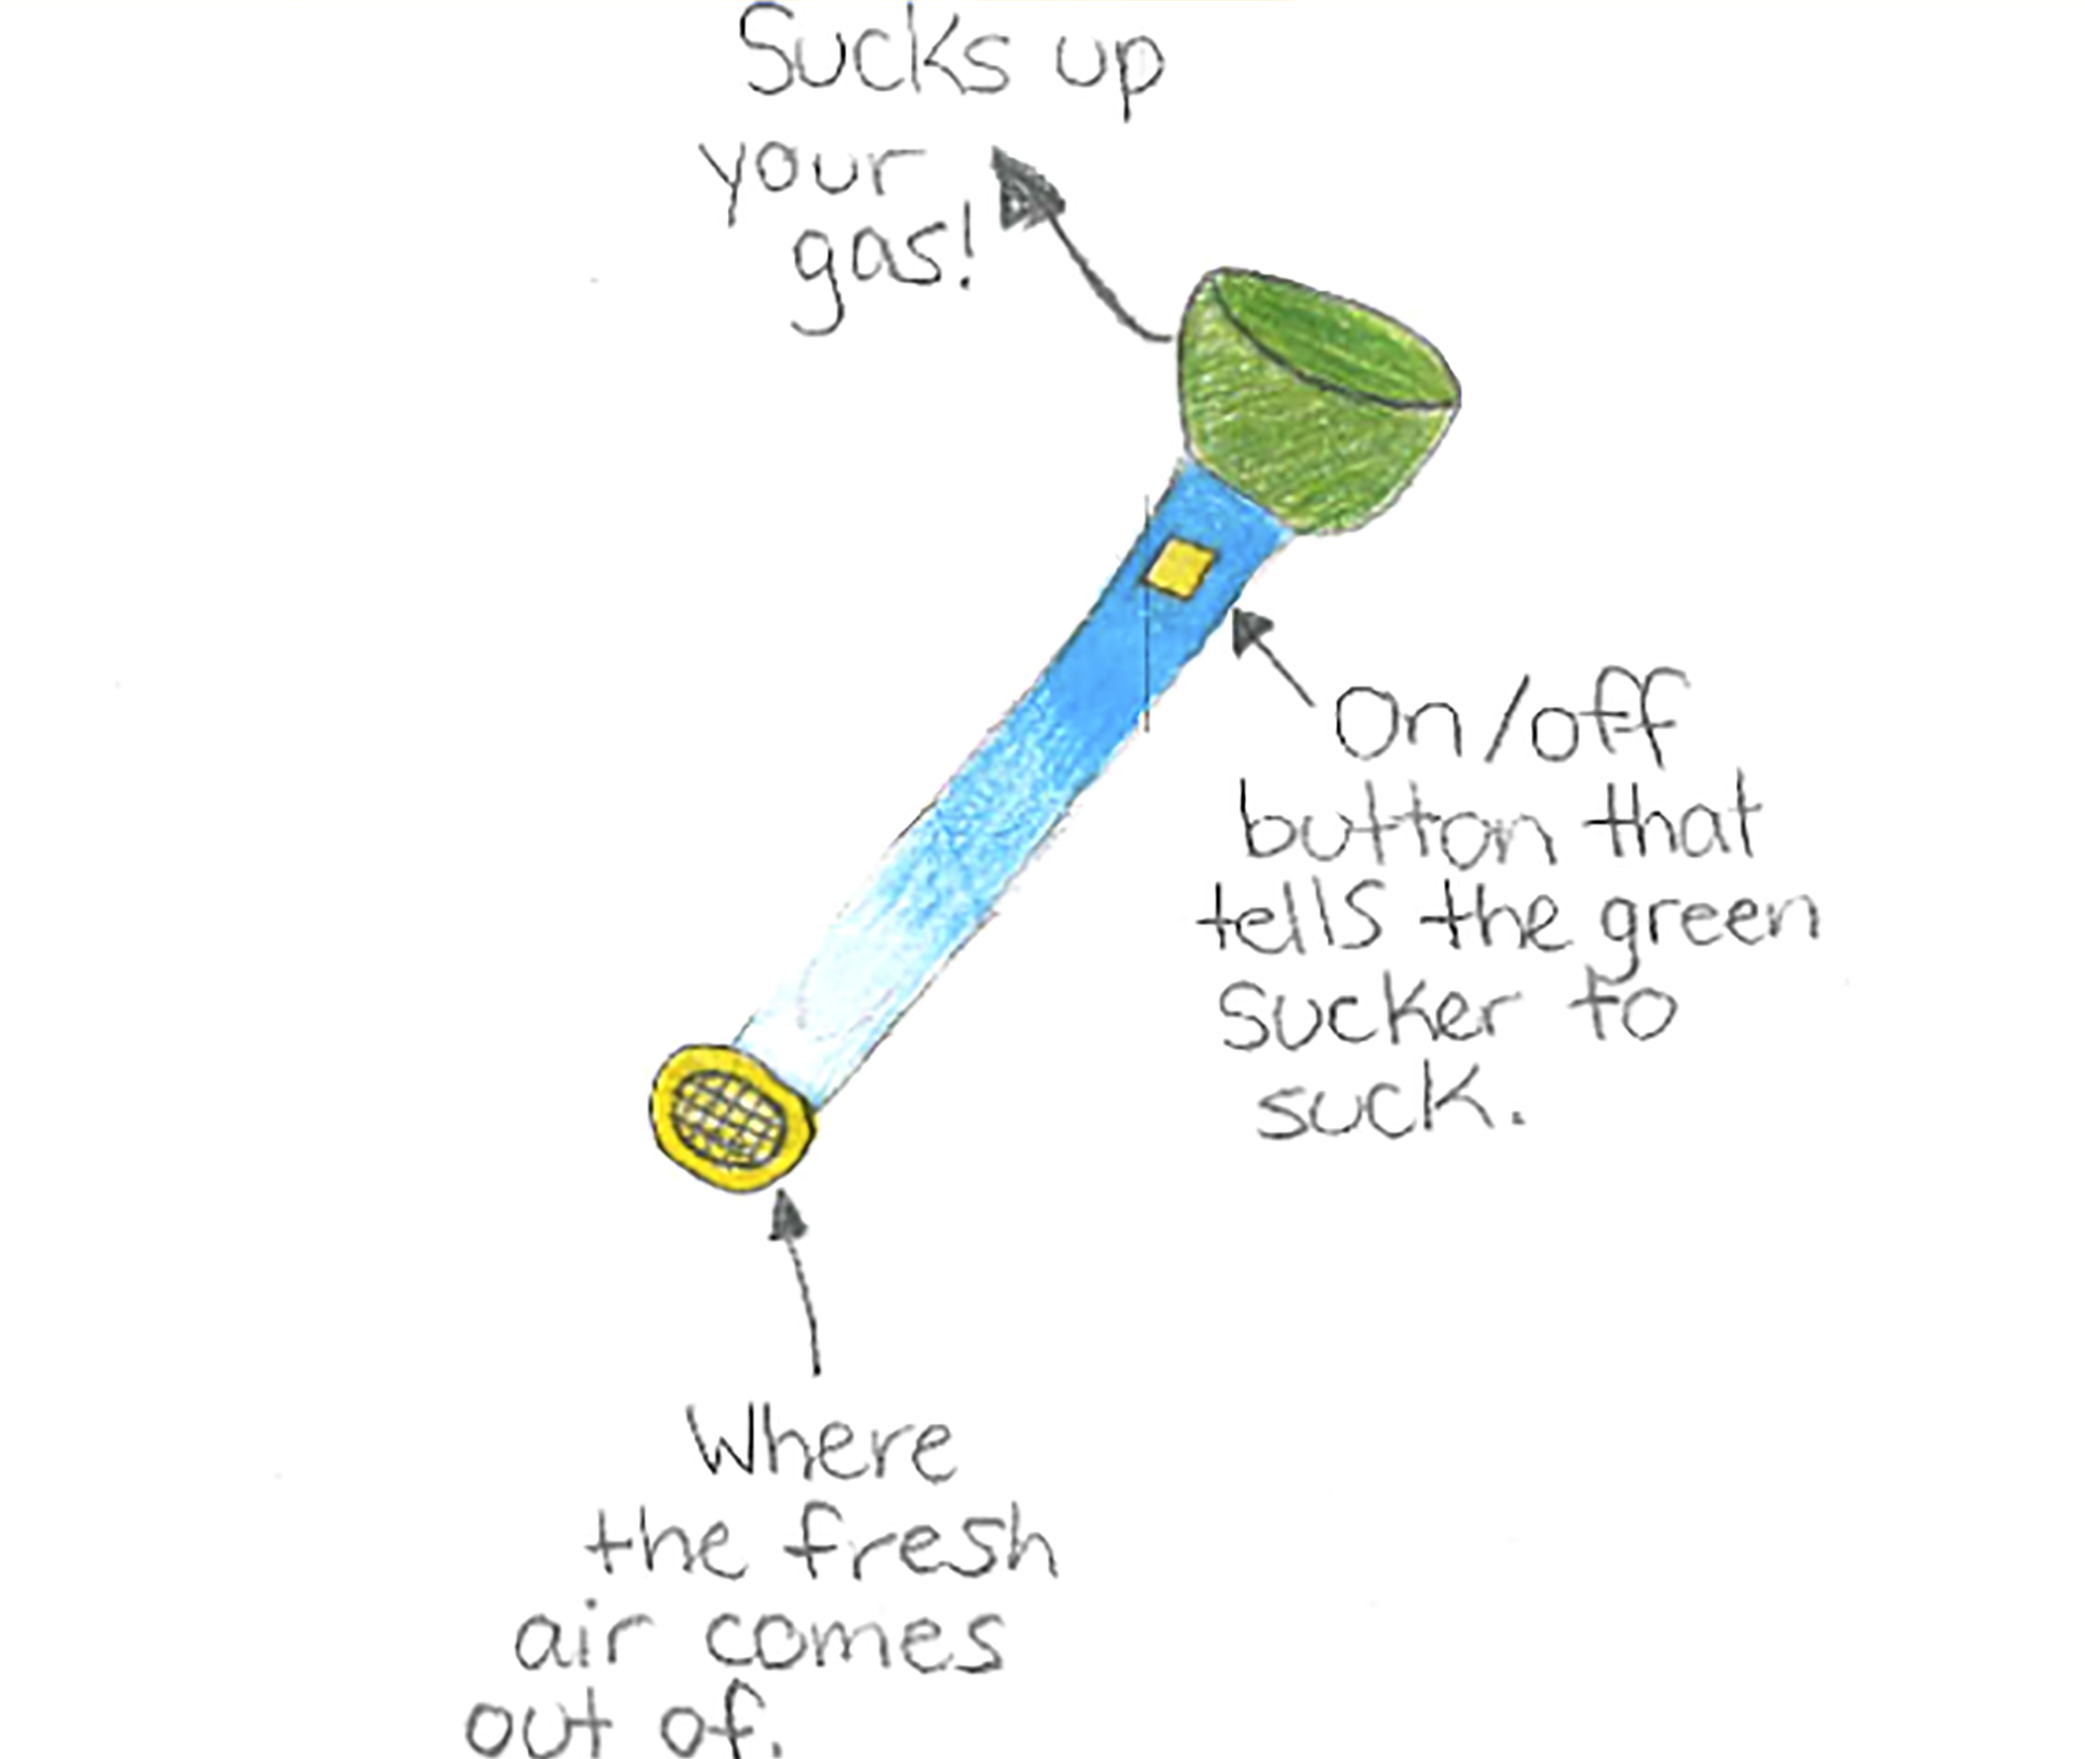 Sucks up
your
gas!
On/off
button that
tells the green
sucker to
suck.
Where
the fresh
air comes
out of.